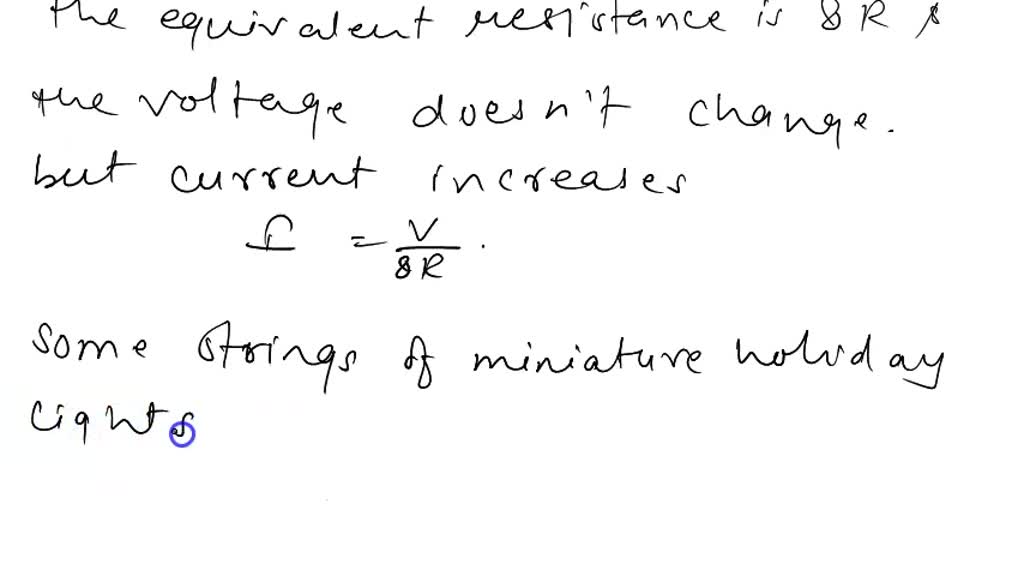 the equivalent resistance is 8R &
the voltage doesn't change.
but current increases
I = V/8R.
Some strings of miniature holiday
lights